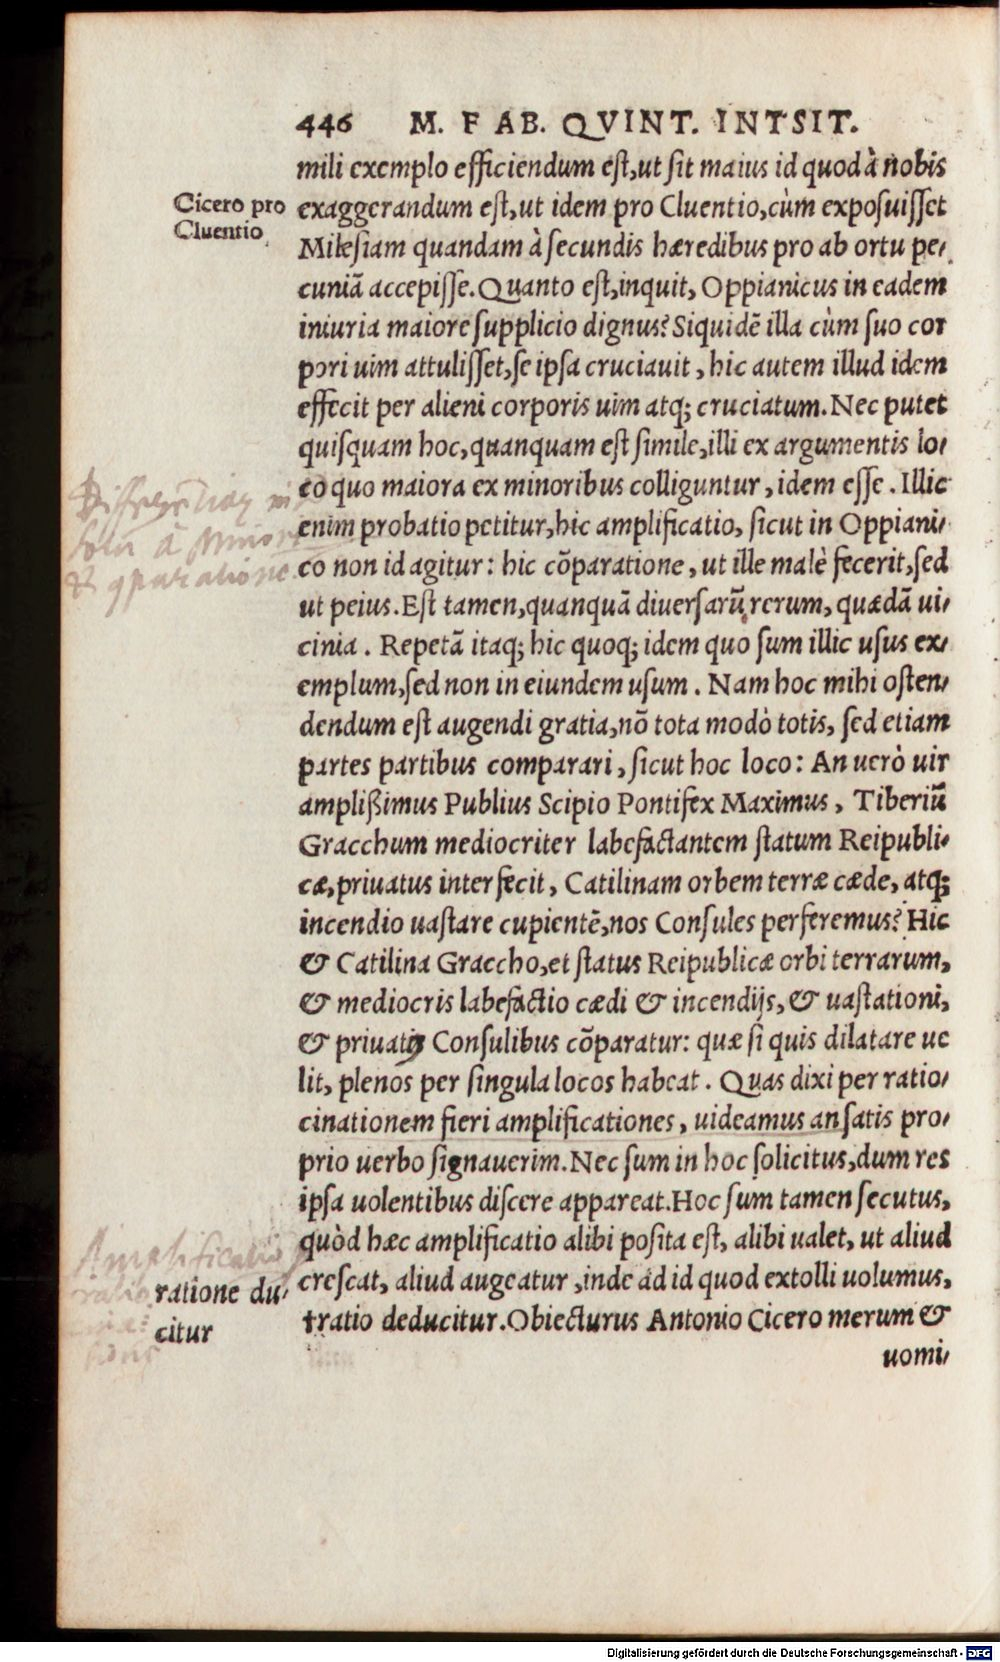 446 M. F AB. QVINT. INTSIT.
mili exemplo efficiendum eſt,ut ſit maius id quod à nobis
Cicero pro
Cluentio
exaggerandum eſt,ut idem pro Cluentio,cùm expoſuiſſet
Mileſiam quandam à ſecundis hæredibus pro ab ortu pe/
cuniā accepiſſe.Quanto eſt,inquit, Oppianicus in eadem
iniuria maiore ſupplicio dignus? Siquidē illa cùm ſuo cor
pori uim attuliſſet,ſe ipſa cruciauit , hic autem illud idem
effecit per alieni corporis uim atq; cruciatum. Nec putet
quiſquam hoc,quanquam eſt ſimile,illi ex argumentis lo/
co quo maiora ex minoribus colliguntur , idem eſſe . Illic
enim probatio petitur,hic amplificatio, ſicut in Oppiani/
co non id agitur: hic cōparatione , ut ille malè fecerit,ſed
ut peius. Eſt tamen,quanquā diuerſarū rerum, quædā ui/
cinia . Repetā itaq; hic quoq; idem quo ſum illic uſus ex/
emplum,ſed non in eiundem uſum . Nam hoc mihi oſten/
dendum eſt augendi gratia,nō tota modò totis, ſed etiam
partes partibus comparari , ſicut hoc loco: An uerò uir
amplißimus Publius Scipio Pontifex Maximus , Tiberiū
Gracchum mediocriter labefactantem ſtatum Reipubli/
cæ,priuatus interfecit , Catilinam orbem terræ cæde, atq;
incendio uaſtare cupientē,nos Conſules perferemus? Hic
& Catilina Graccho,et ſtatus Reipublicæ orbi terrarum,
& mediocris labefactio cædi & incendijs, & uaſtationi,
& priuatis Conſulibus cōparatur: quæ ſi quis dilatare ue
lit, plenos per ſingula locos habeat . Quas dixi per ratio/
cinationem fieri amplificationes , uideamus an ſatis pro/
prio uerbo ſignauerim. Nec ſum in hoc ſolicitus,dum res
ipſa uolentibus diſcere appareat. Hoc ſum tamen ſecutus,
quòd hæc amplificatio alibi poſita eſt, alibi ualet, ut aliud
Amplificatio
ratione du/
citur
creſcat, aliud augeatur ,inde ad id quod extolli uolumus,
tratio deducitur. Obiecturus Antonio Cicero merum &
uomi/
Digitalisierung gefördert durch die Deutsche Forschungsgemeinschaft - DFG